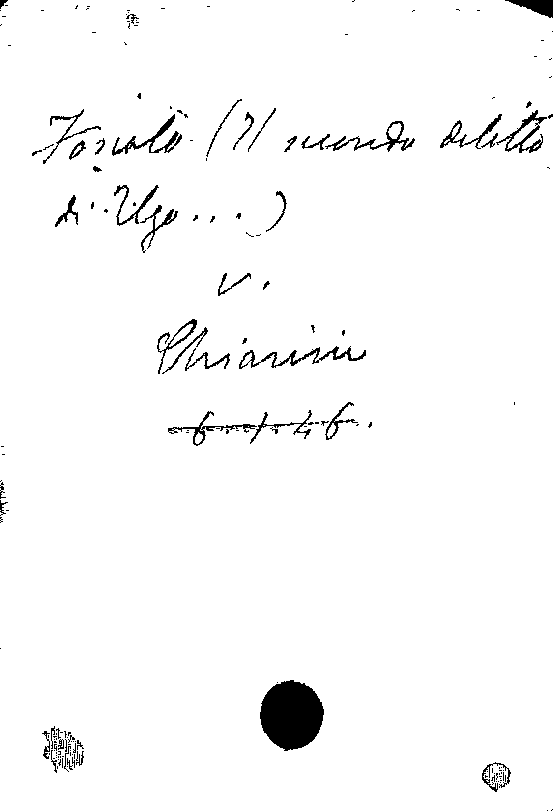 Foscolo (Il secondo delitto
di Ugo...)
v.
Chiarini
6.1.46.